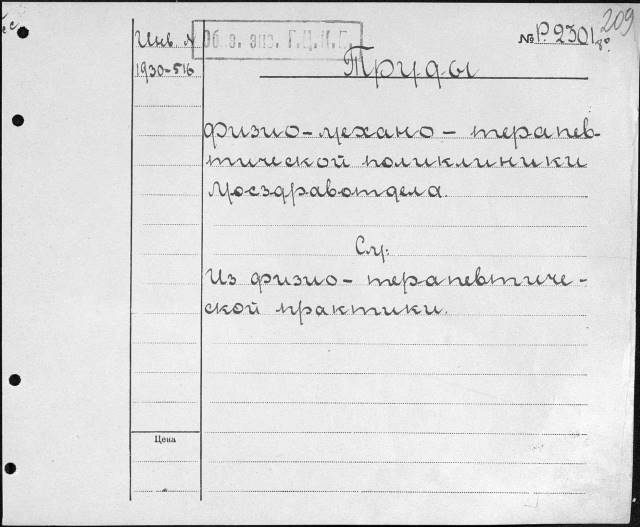 209
Инв. №
Об. э. эпз. Г.Ц.И.Г.
№ Р. 2301
8°
1930-516
Труды
Физио-механо-терапев-
тической поликлиники
Мосздравотдела.
См:
Из физио-терапевтиче-
ской практики.
Цена